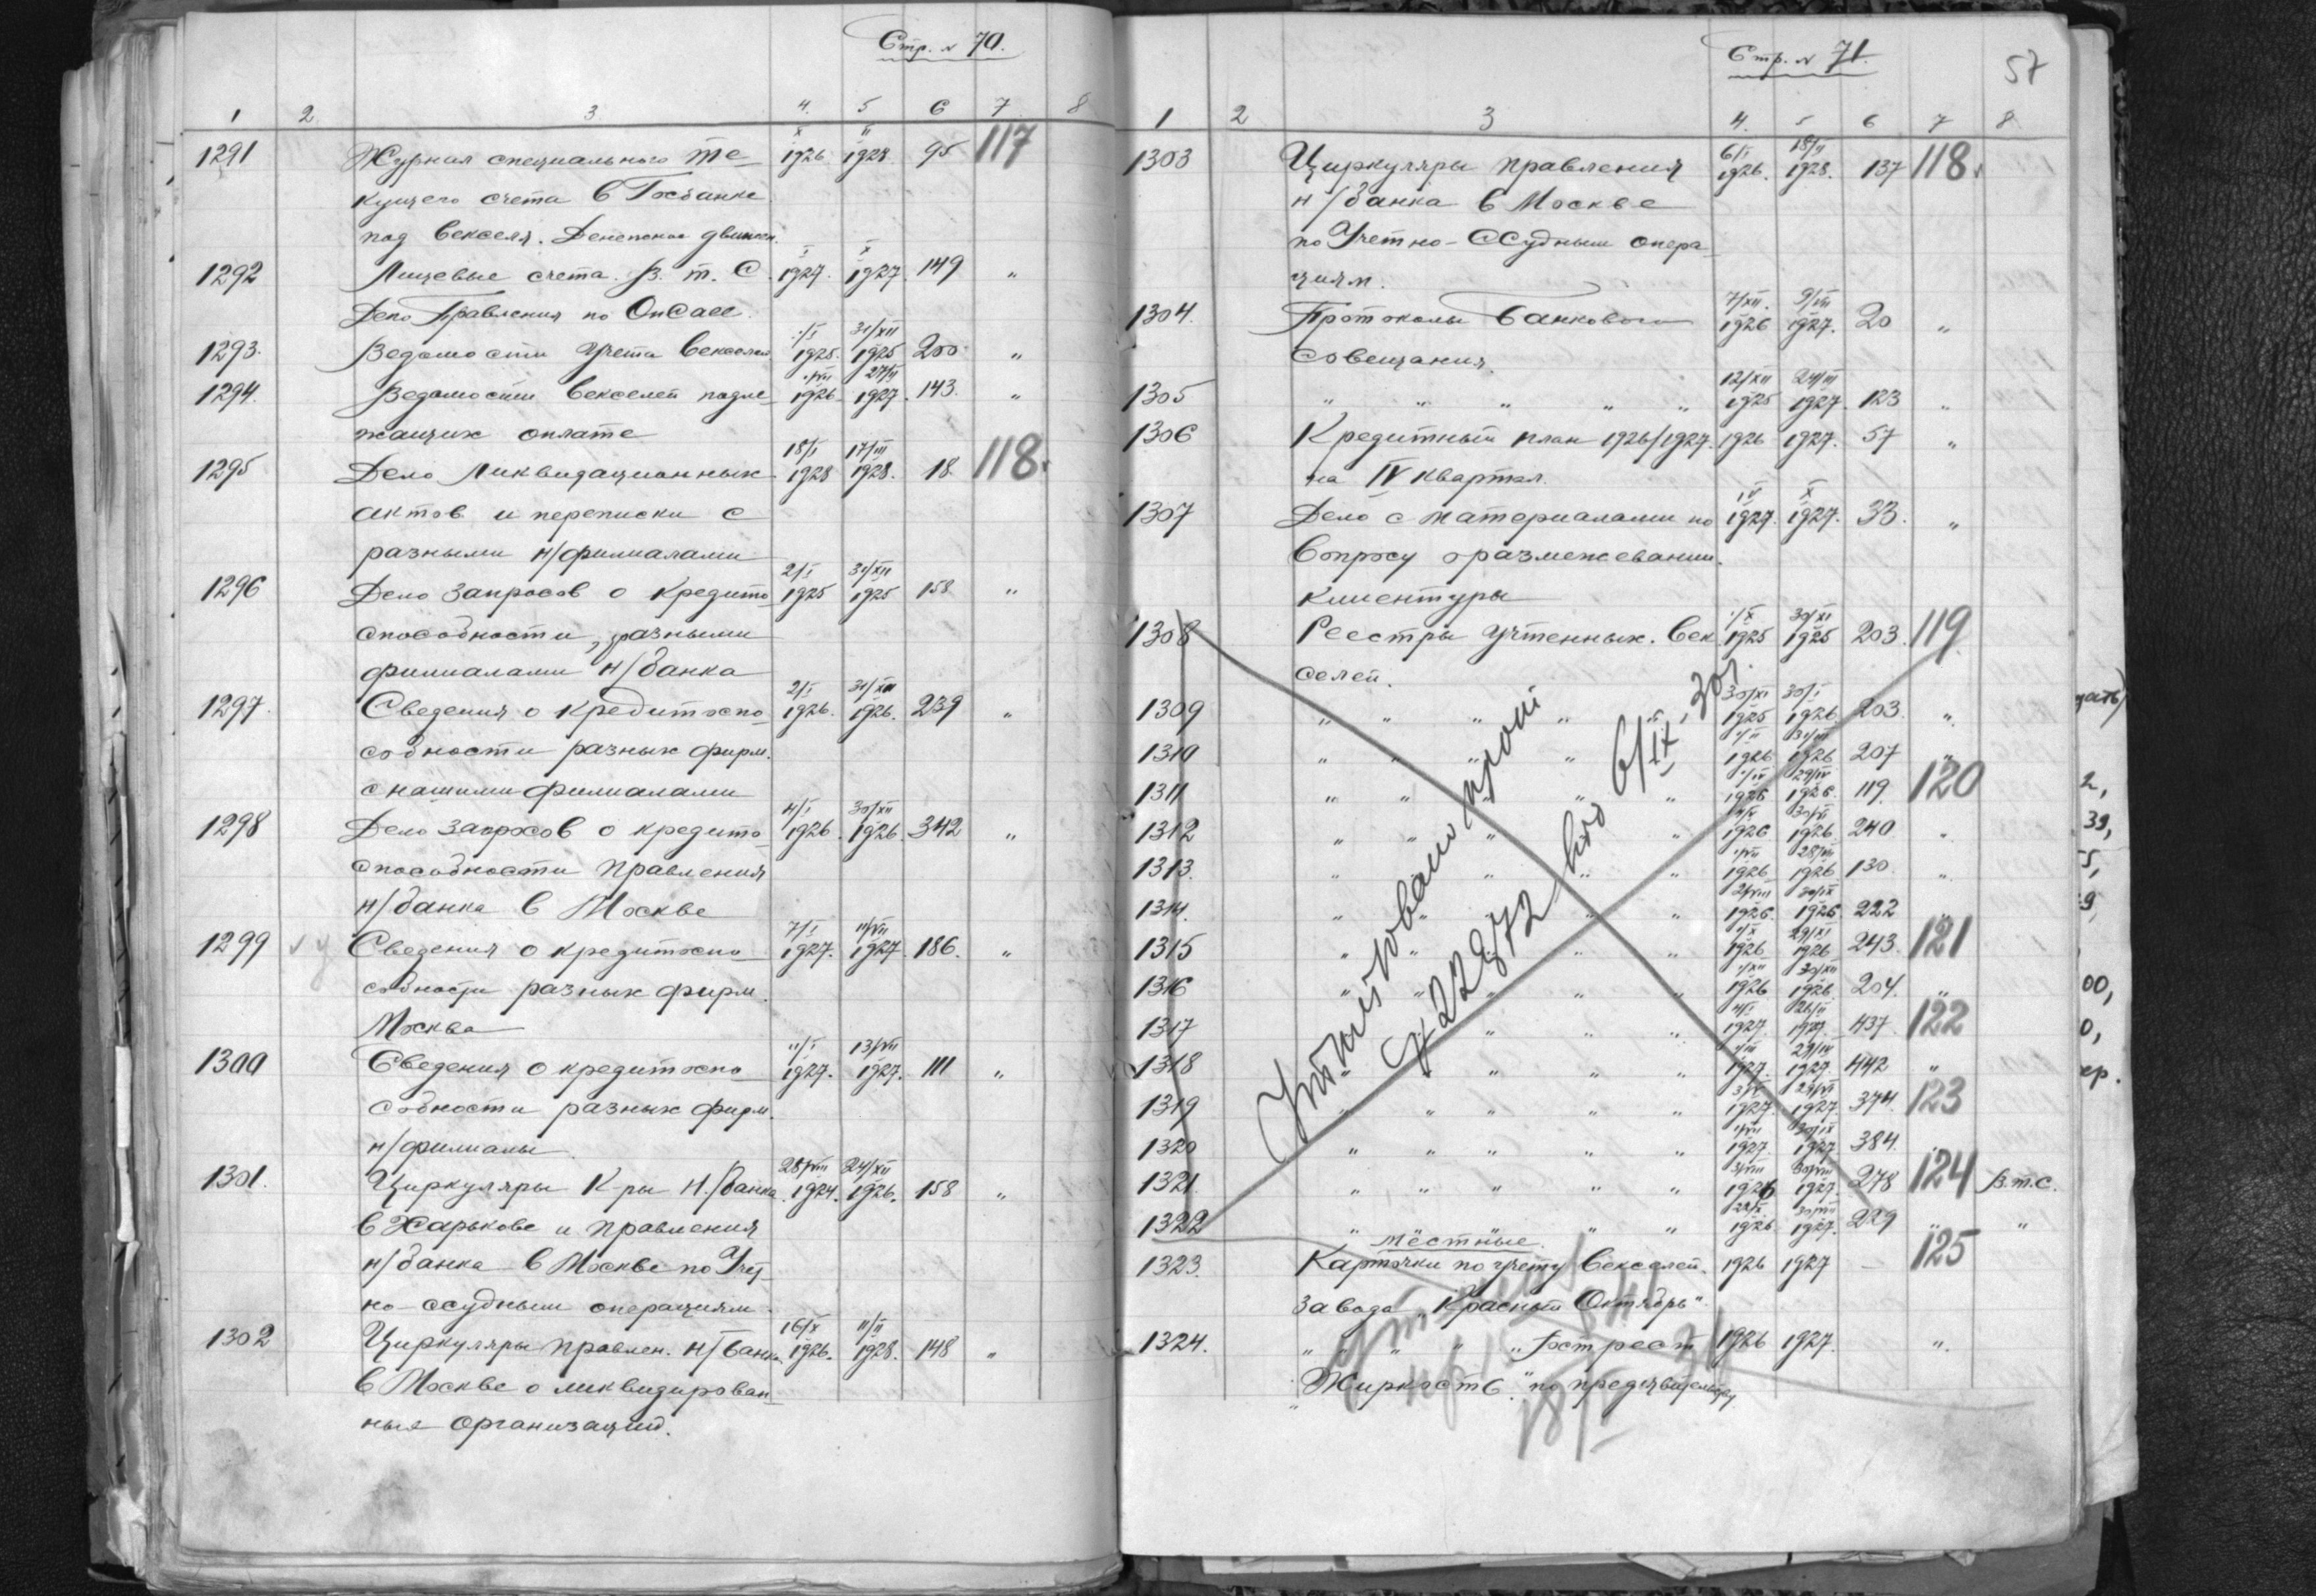 Стр. № 70.
1 2 3 4. 5 6 7 8
1291 Журнал специального те- X 1926 II 1928 95 117
кущего счета в Госбанке
под векселя. Денежное движен.
1292 Лицевые счета В. т. С. I 1927. X 1927 149 "
Депо Правления по ОнСаll.
1293. Ведомости учета векселей 1/I 1925. 31/XII 1925 200 "
1294. Ведомости векселей подле- 1/VII 1926 27/II 1927. 143. "
жащих оплате
1295 Дело Ликвидационных 18/I 1928 17/III 1928. 18. 118.
актов и переписки с
разными н/филиалами
1296 Дело запросов о кредито- 2/I 1925 31/XII 1925 158 "
способности, разными
филиалами н/банка
1297. Сведения о кредитоспо- 2/I 1926. 31/XII 1926. 239 "
собности разных фирм.
с нашими филиалами
1298 Дело запросов о кредито- 4/I 1926. 30/XII 1926. 342 "
способности Правления
н/банка в Москве
1299 Сведения о кредитоспо- 7/I 1927. 11/VII 1927. 186. "
собности разных фирм.
Москва
1300 Сведения о кредитоспо- 11/I 1927. 13/VII 1927. 111 "
собности разных фирм.
н/филиалы
1301. Циркуляры К-ры Н./банка 28/VIII 1924. 24/XII 1926. 158 "
в Харькове и правления
н/банка в Москве по Учет-
но-ссудным операциям.
1302 Циркуляры правлен. н/банка 16/X 1926. 11/II 1928. 148 "
в Москве о ликвидирован-
ных организаций.
Стр. № 71.
57
1 2 3 4. 5 6 7 8
1303 Циркуляры правления 6/I 1926. 18/II 1928. 137 118.
н/банка в Москве
по Учетно-Ссудным опера-
циям.
1304. Протоколы Банкового 7/XII. 1926 9/VIII 1927. 20 "
совещания.
1305 " " " " " 12/XII 1925 24/III 1927. 123 "
1306 Кредитный план 1926/1927. 1926 1927. 57 "
на IV квартал.
1307 Дело с материалами по IV 1927. X 1927. 33. "
вопросу о размежевании
клиентуры
1308 Реестры учтенных век- 1/X 1925 30/XI 1925 203. 119
селей.
1309 " " " " " 30/XI 1925 30/I 1926 203. "
1310 " " " " 1/II 1926 31/III 1926 207 "
1311 " " " " " 1/IV 1926 29/IV 1926. 119. 120
1312 " " " " 1926 1926 240. "
1313. " " " " 1/VII 1926 28/VII 1926 130. "
1314. " " " " " 2/VIII 1926 30/IX 1926 222 "
1315 " " " " " 1/X 1926 29/XI 1926 243. 121
1316 " " " " " 1/XII 1926 30/XII 1926 204. "
1317 " " " 1927. 26/II 1927. 437. 122
1318 " " " " " 1/III 1927. 29/IV 1927. 442 "
1319 " " " " " 1927 1927. 374. 123
1320 " " " " " 1/VII 1927 30/IX 1927 384. "
1321. " " " " " 1926 30/VIII 1927. 278 124 В.т.С.
1322 " " " " " 1926 1927. 229 " "
местные.
1323. Карточки по учету векселей. 1926 1927 — 125
завода „Красный Октябрь"
1324. " " " " трест 1926 1927. "
" Жиркость" по предъявительству
Утилизовано
№ 22872 6/IX 30г.
дать)
2,
39,
5,
9,
00,
0,
ер.